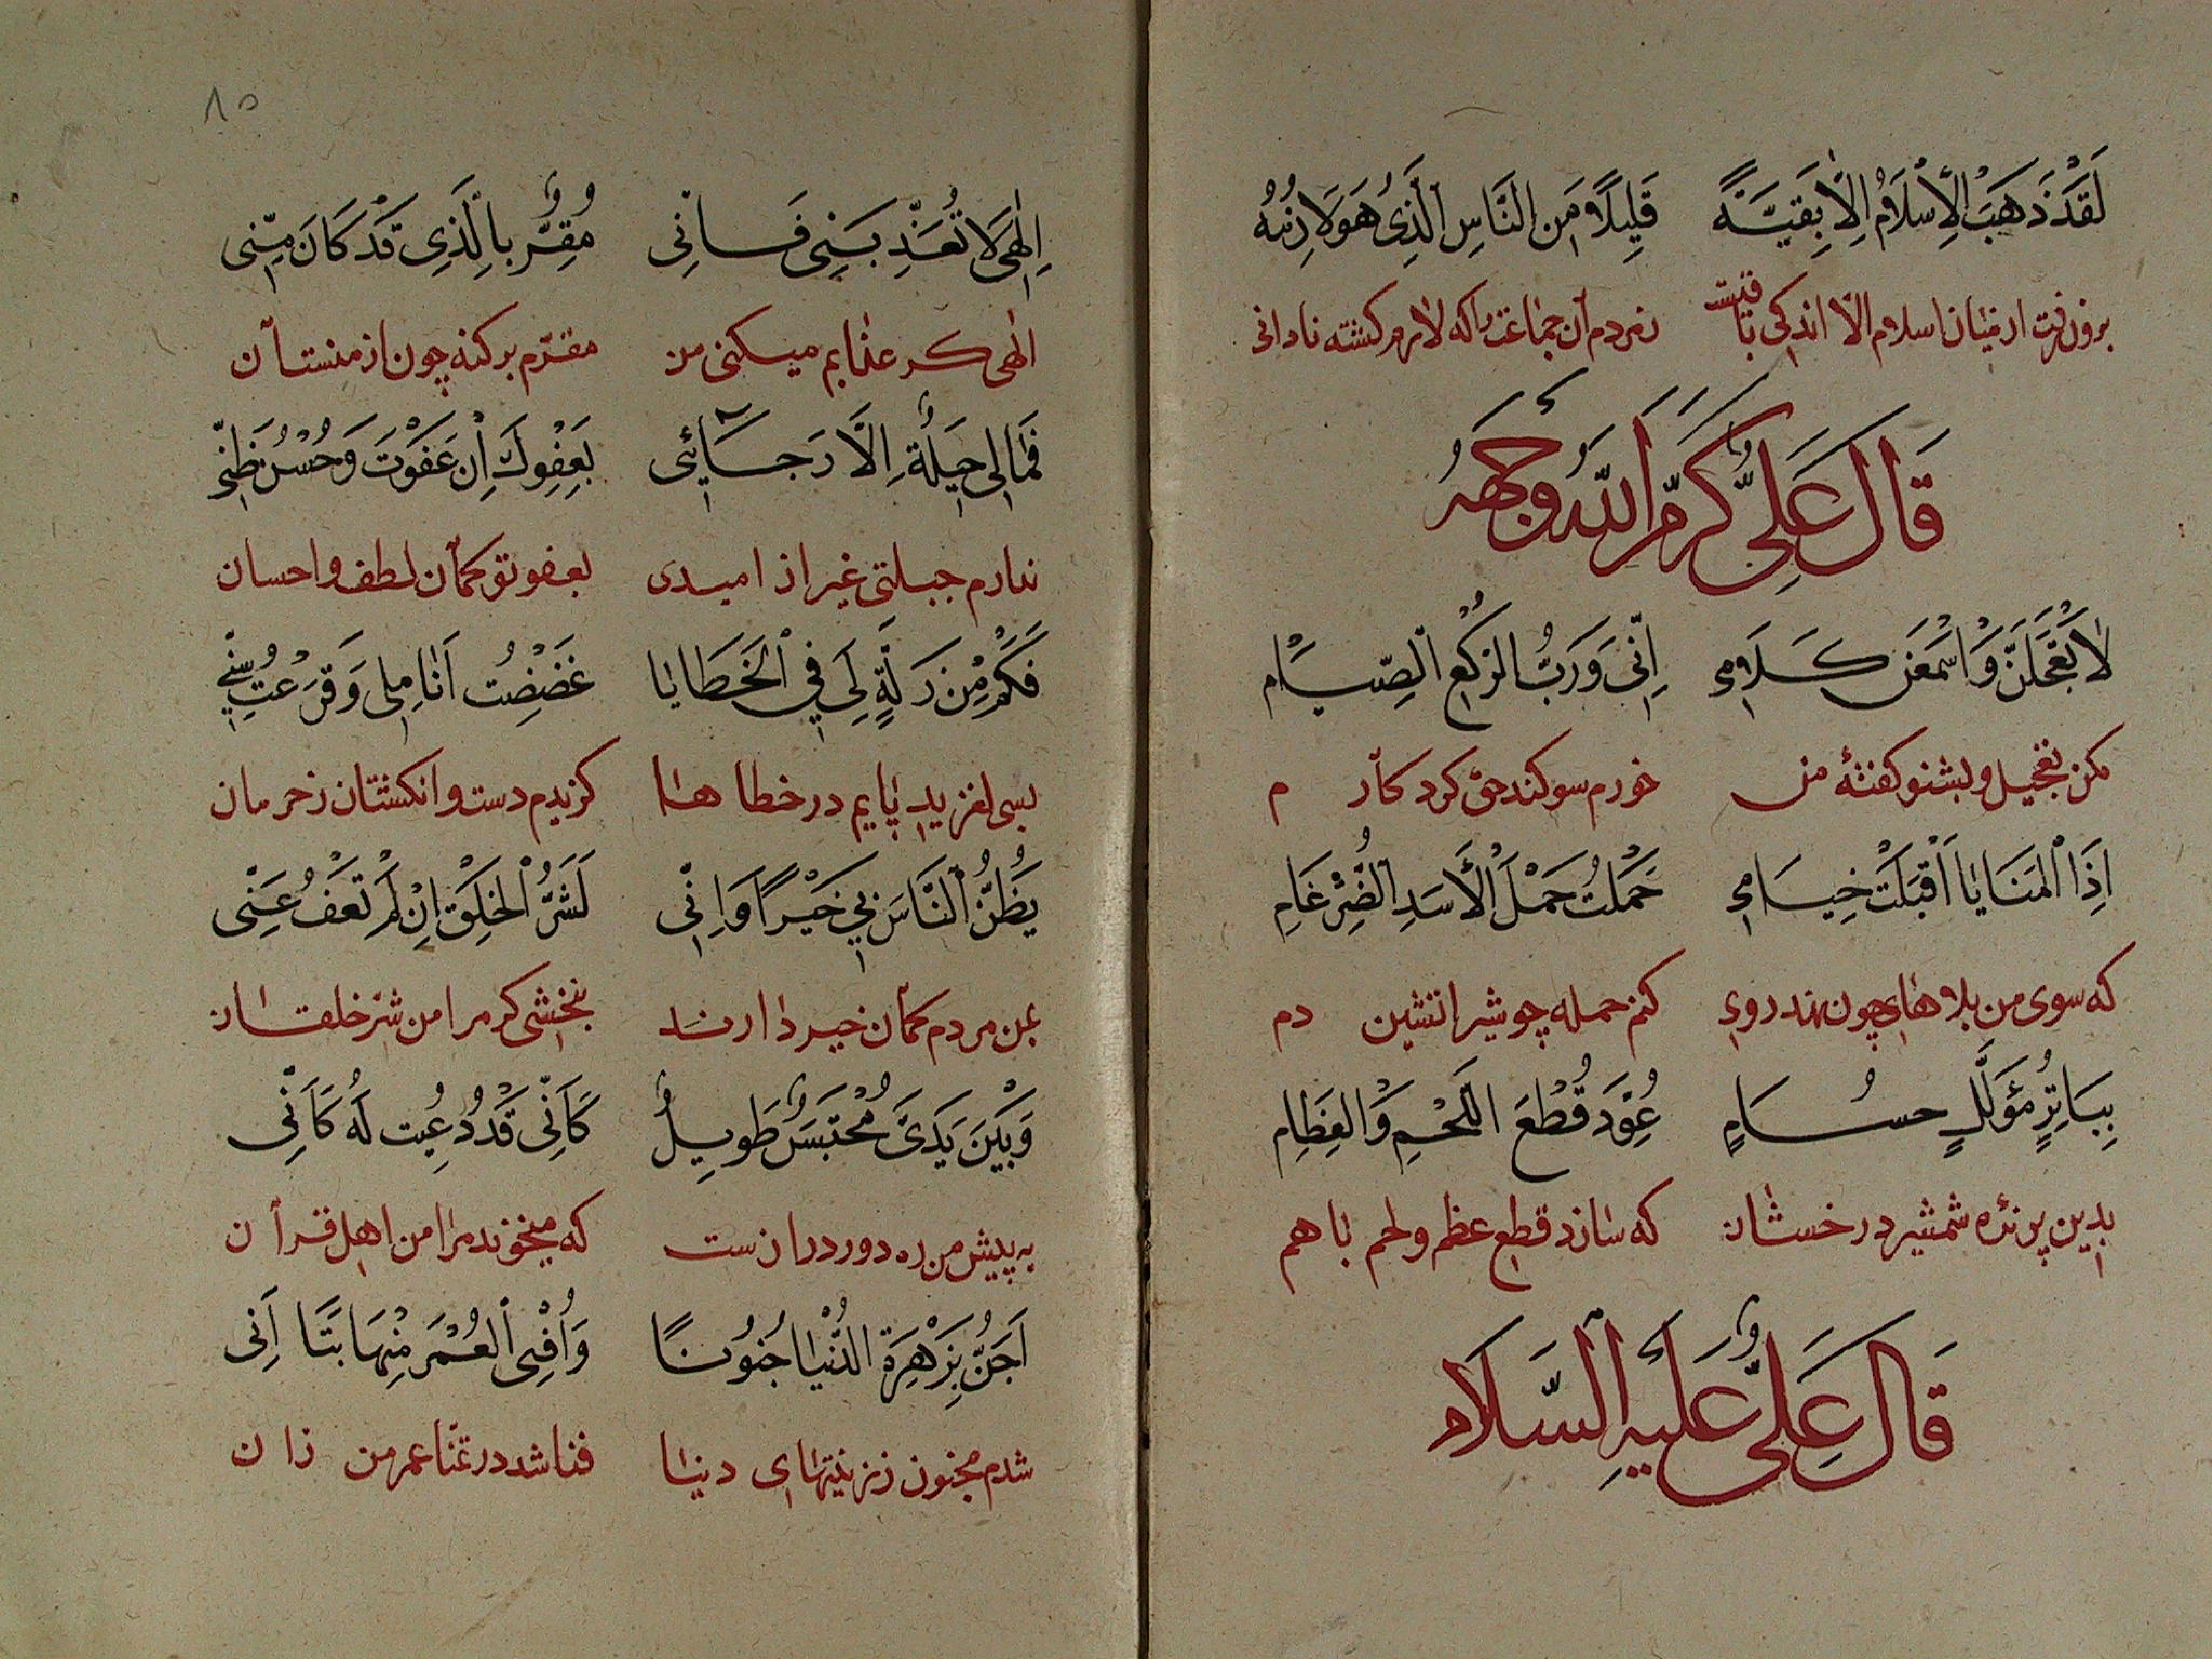 لَقَدْ ذَهَبَ الْإِسْلَامُ إِلَّا بَقِيَّةً قَلِيلًا مِنَ النَّاسِ الَّذِي هُوَ لَازِمُهُ
برون رفت از میان اسلام الا اندکی باقیست ز مردم آن جماعت را که لازم کشته نادانی
قَالَ عَلِيٌّ كَرَّمَ اللهُ وَجْهَهُ
لَا تَعْجَلَنَّ وَاسْمَعَنْ كَلَامِي إِنِّي وَرَبِّ الرُّكَّعِ الصِّيَامِ
مکن تعجیل و بشنو کفتهٔ من خورم سوکند حق کردکارم
إِذَا الْمَنَايَا أَقْبَلَتْ خِيَامِي حَمَلْتُ حَمْلَ الْأَسَدِ الضِّرْغَامِ
که سوی من بلاهای چون نهد روی کنم حمله چو شیر اتشین دم
بِبَاتِرٍ مُؤَلَّلٍ حُسَامٍ عُوِّدَ قُطْعَ اللَّحْمِ وَالْعِظَامِ
بدین برنده شمشیر درخشان که سازد قطع عظم و لحم باهم
قَالَ عَلِيٌّ عَلَيْهِ السَّلَام
٨٥
إِلٰهِي لَا تُعَذِّبْنِي فَإِنِّي مُقِرٌّ بِالَّذِي قَدْ كَانَ مِنِّي
الهی کر عذابم میکنی من مقرّم بر کنه چون از منست آن
فَمَا لِي حِيلَةٌ إِلَّا رَجَائِي بِعَفْوِكَ إِنْ عَفَوْتَ وَحُسْنُ ظَنِّي
ندارم حیلتی غیر از امیدی بعفو تو کمان لطف و احسان
فَكَمْ مِنْ زَلَّةٍ لِي فِي الْخَطَايَا عَضَضْتُ أَنَامِلِي وَقَرَعْتُ سِنِّي
بسی لغزید پایم در خطاها کزیدم دست و انکشتان ز حرمان
يَظُنُّ النَّاسَ بِي خَيْرًا وَإِنِّي لَشَرُّ الْخَلْقِ إِنْ لَمْ تَعْفُ عَنِّي
بمن مردم کمان خیر دارند نبخشی کر مرا من شرّ خلقان
وَبَيْنَ يَدَيَّ مُحْتَبَسٌ طَوِيلٌ كَأَنِّي قَدْ دُعِيتُ لَهُ كَأَنِّي
به پیش من ره دور درازست که میخوند مرا من اهل قرآن
أُجَنُّ بِزَهْرَةِ الدُّنْيَا جُنُونًا وَأُفْنِي الْعُمْرَ مِنْهَا
شدم مجنون ز زینتهای دنیا فنا شد در تمنا عمر من زان